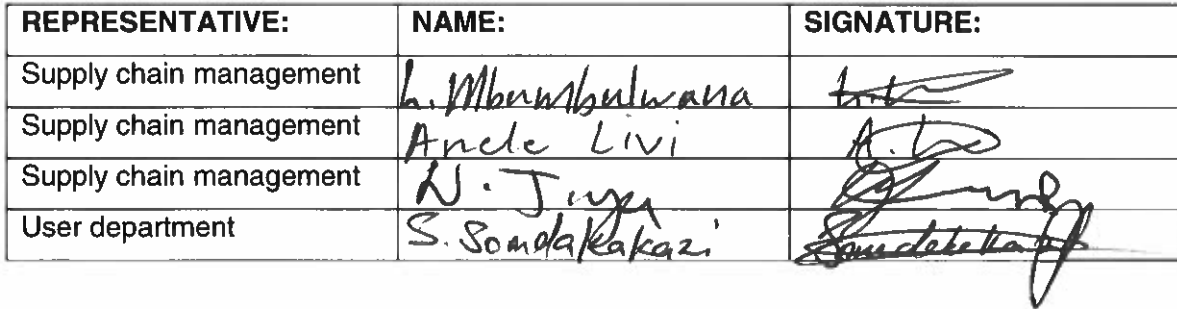 REPRESENTATIVE: NAME: SIGNATURE:
Supply chain management L. Mbumbulwana
Supply chain management Anele Livi A.
Supply chain management N.
User department S. Somdakakazi Somdakakazi